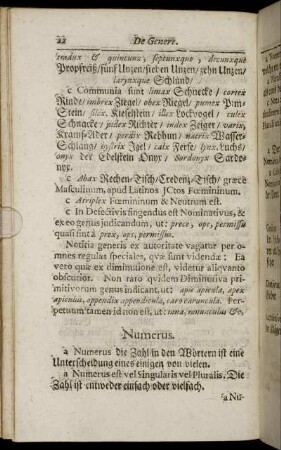 22 De Genere.
tredux & quincunx, septunxque, decunxque
Propfreiß/ fünf Unzen/ sieben Unzen/ zehn Unzen/
larynxque Schlund/
c Communia sunt limax Schnecke/ cortex
Rinde/ imbrex Ziegel/ obex Riegel/ pumex Pim-
Stein/ silex, Kieselstein/ illex Lockvogel/ culex
Schnacke/ judex Richter/ index Zeiger/ varix,
Krampf-Ader/ perdix Rebhun/ natrix Wasser-
Schlang/ hystrix Igel/ calx Ferse/ lynx, Luchs/
onyx der Edelstein Onyx/ Sardonyx Sardo-
nyx.
c Abax Rechen-Tisch/ Credenz-Tisch/ græcè
Masculinum, apud Latinos JCtos Fœmininum.
c Atriplex Fœmininum & Neutrum est.
c In Defectivis fingendus est Nominativus, &
ex eo genus judicandum, ut: prece, ope, permissu
quasi sint à prex, ops, permissus.
Notitia generis ex autoritate vagatur per om-
nes regulas speciales, quæ sunt videndæ: Ea
verò quæ ex diminutione est, videtur aliquanto
obscurior. Non raro quidem Diminutiva pri-
mitivorum genus indicant, ut: apis apicula, apex
apiculus, appendix appendicula, caro caruncula. Per-
petuum tamen id non est, ut: rana, ranunculus &c.
Numerus.
a Numerus die Zahl in den Wörtern ist eine
Unterscheidung eines einigen von vielen.
a Numerus est vel Singularis vel Pluralis. Die
Zahl ist entweder einfach oder vielfach.
a Nu-